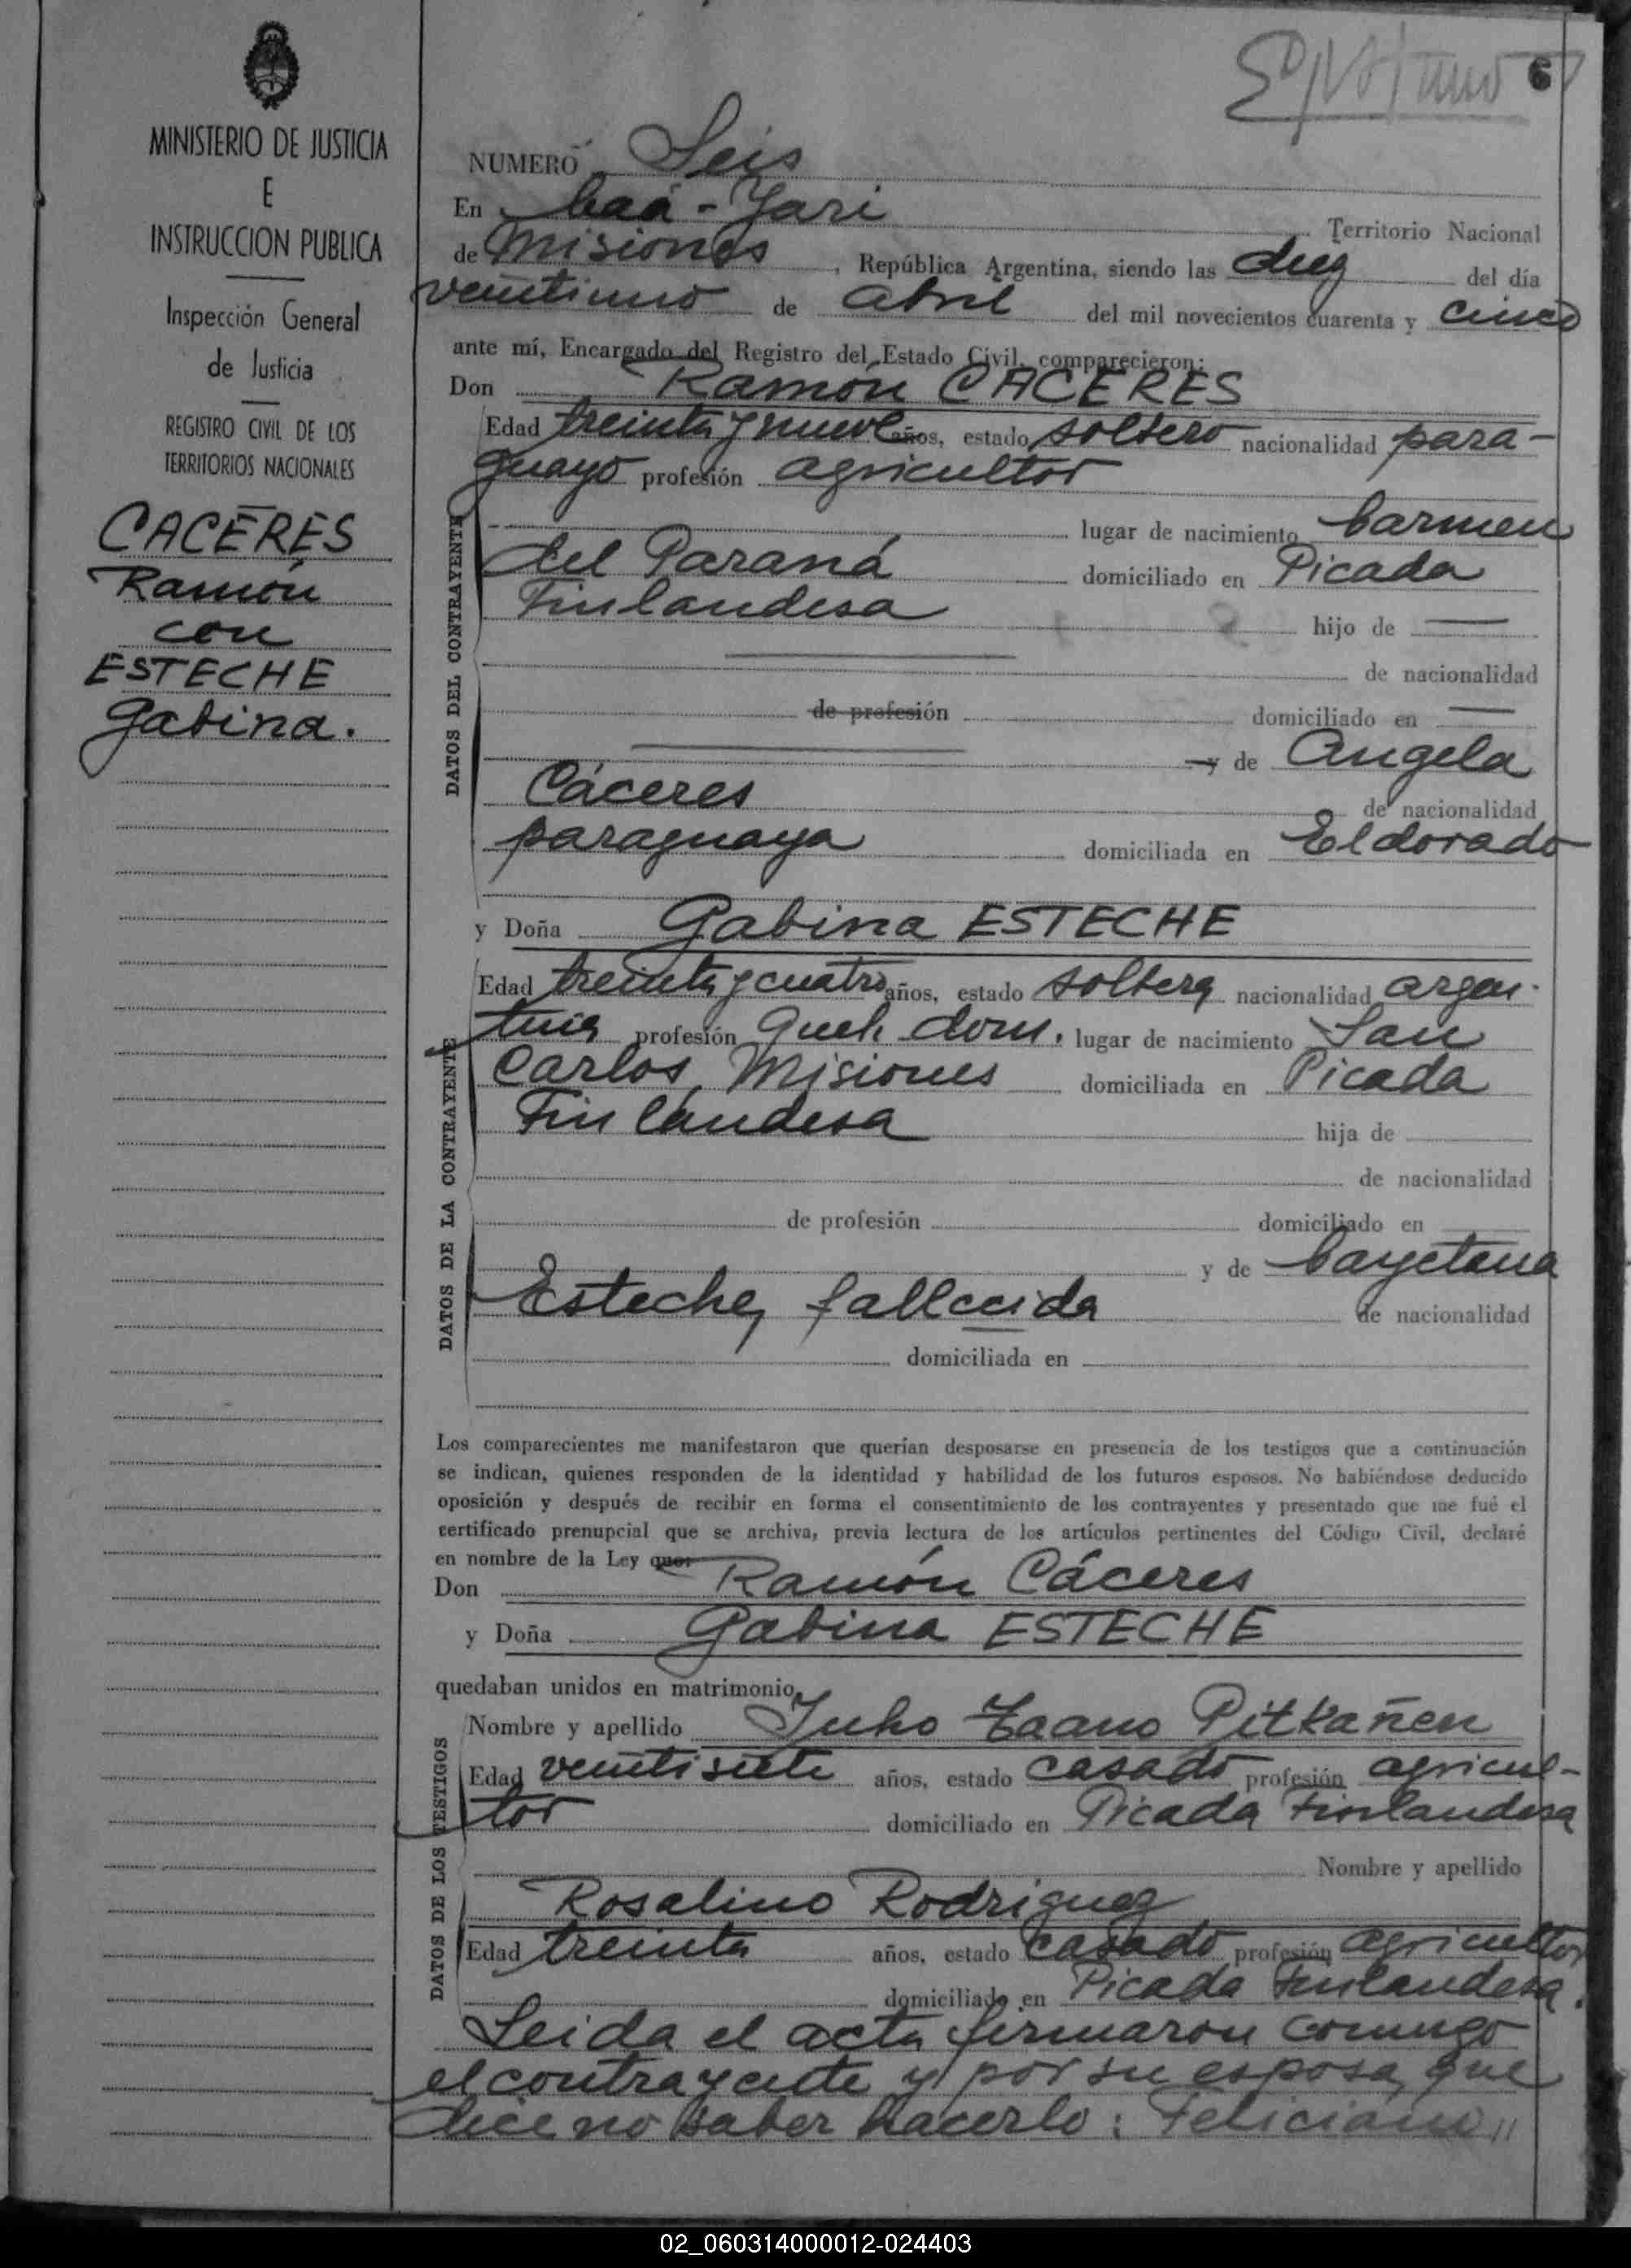 6
MINISTERIO DE JUSTICIA
E
INSTRUCCION PUBLICA
Inspección General
de Justicia
REGISTRO CIVIL DE LOS
TERRITORIOS NACIONALES
CACERES
Ramón
con
ESTECHE
Gabina.
NUMERO Seis
En Caá-Yarí Territorio Nacional
de Misiones, República Argentina, siendo las diez del día
veintiuno de abril del mil novecientos cuarenta y cinco
ante mí, Encargado del Registro del Estado Civil, comparecieron:
Don Ramón CACERES
DATOS DEL CONTRAYENTE
Edad treinta y nueve años, estado soltero nacionalidad para-
guayo profesión agricultor
lugar de nacimiento Carmen
del Paraná domiciliado en Picada
Finlandesa hijo de
de nacionalidad
de profesión domiciliado en
y de Angela
Cáceres de nacionalidad
paraguaya domiciliada en Eldorado
y Doña Gabina ESTECHE
DATOS DE LA CONTRAYENTE
Edad treinta y cuatro años, estado soltera nacionalidad argen-
tina profesión Queh. dom. lugar de nacimiento San
Carlos, Misiones domiciliada en Picada
Finlandesa hija de
de nacionalidad
de profesión domiciliado en
y de Cayetana
Esteche, fallecida de nacionalidad
domiciliada en
Los comparecientes me manifestaron que querían desposarse en presencia de los testigos que a continuación
se indican, quienes responden de la identidad y habilidad de los futuros esposos. No habiéndose deducido
oposición y después de recibir en forma el consentimiento de los contrayentes y presentado que me fué el
certificado prenupcial que se archiva, previa lectura de los artículos pertinentes del Código Civil, declaré
en nombre de la Ley que:
Don Ramón Cáceres
y Doña Gabina ESTECHE
quedaban unidos en matrimonio.
DATOS DE LOS TESTIGOS
Nombre y apellido Juho Pitkañen
Edad veintisiete años, estado casado profesión agricul-
tor domiciliado en Picada Finlandesa
Nombre y apellido
Rosalino Rodriguez
Edad treinta años, estado casado profesión agricultor
domiciliado en Picada Finlandesa.
Leida el acta firmaron conmigo
el contrayente y por su esposa, que
dice no saber hacerlo: Feliciano //
02_060314000012-024403